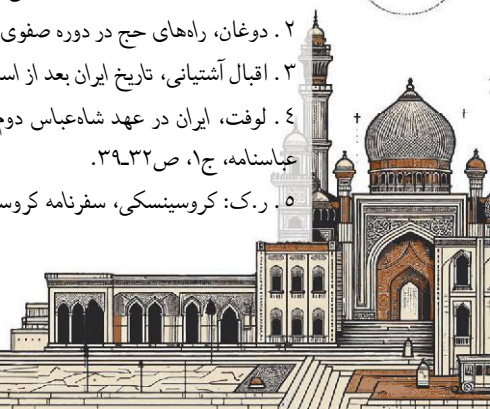 ۲. دوغان، راه‌های حج در دوره صفوی
۳. اقبال آشتیانی، تاریخ ایران بعد از
٤. لوفت، ایران در عهد شاه‌عباس دوم
عباسنامه، ج۱، ص۳۲ـ۳۹.
۵. ر.ک: کروسینسکی، سفرنامه